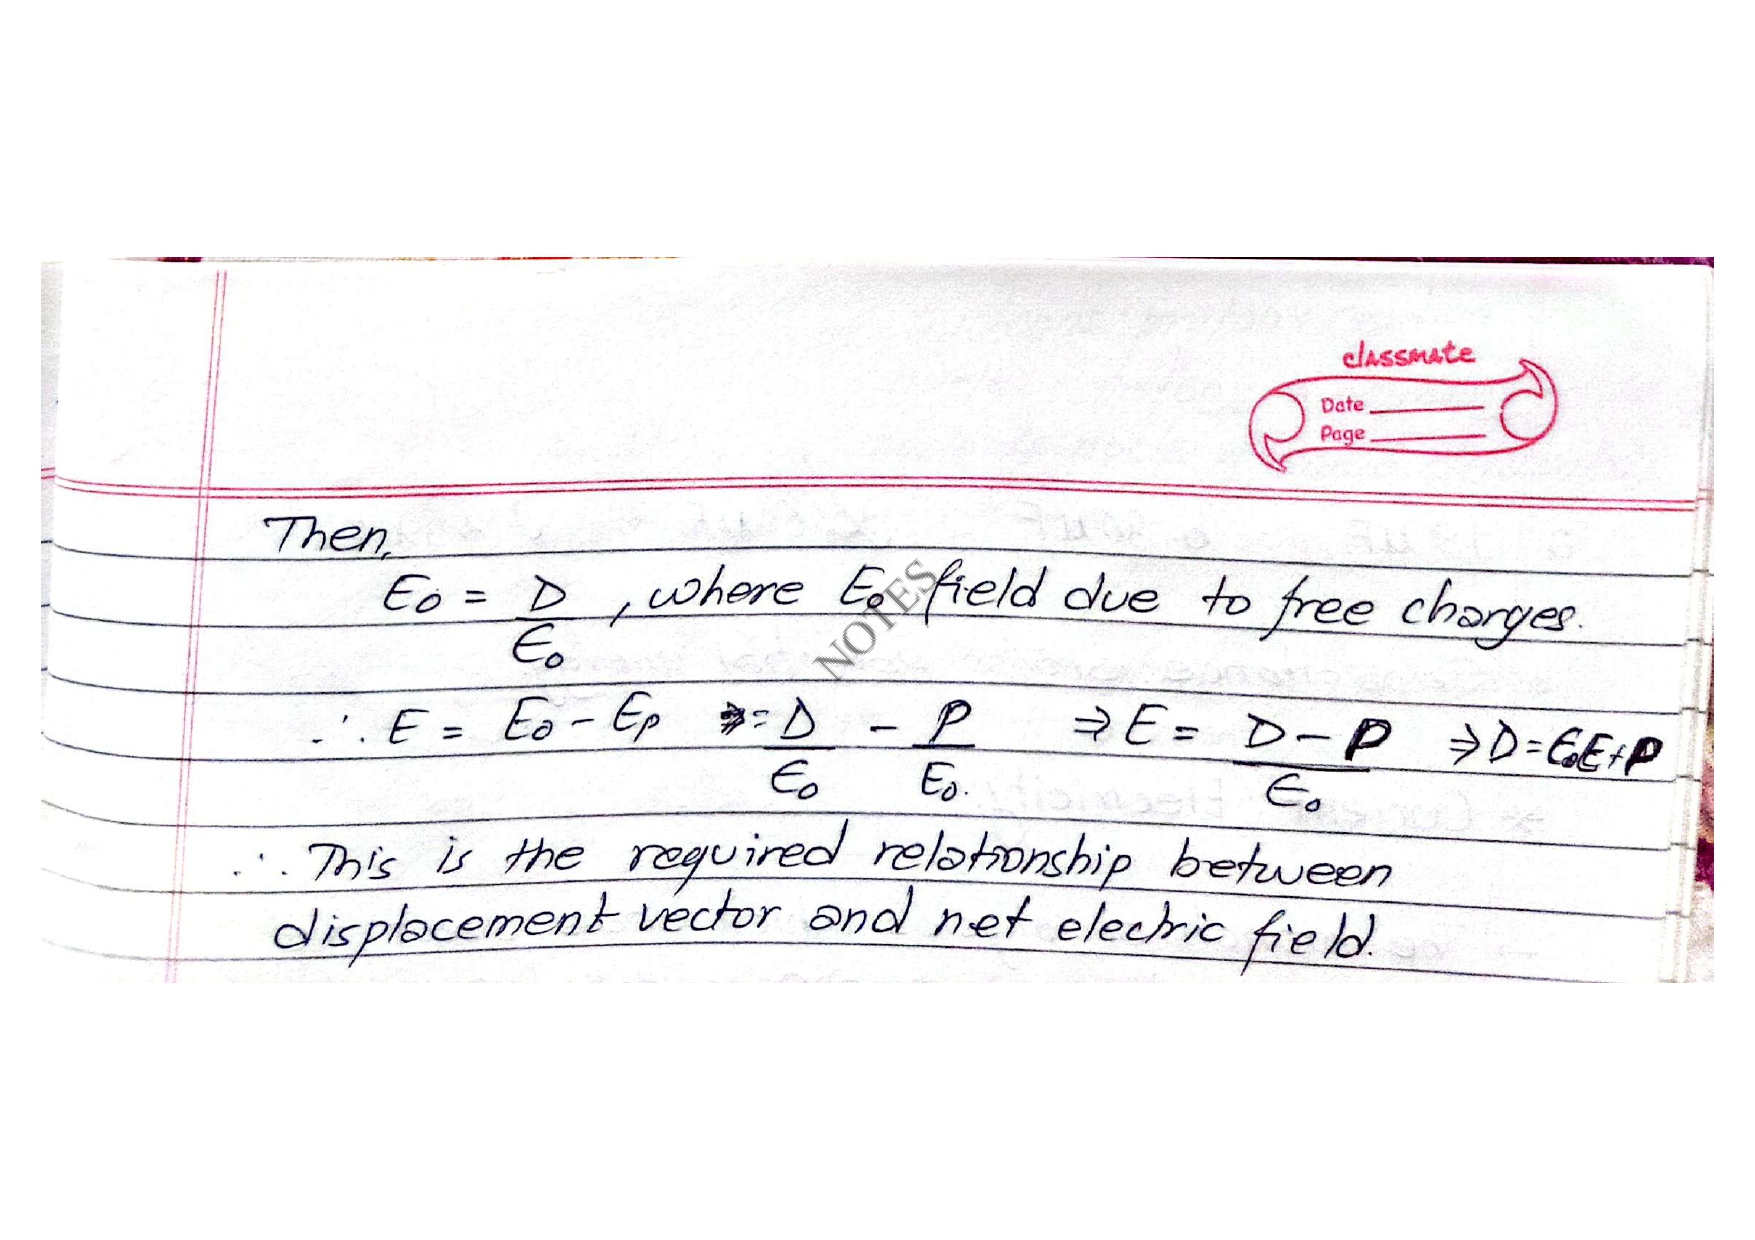 classmate
Date
Page
Then,
E₀ = D/ϵ₀ , where E₀ field due to free charges.
∴ E = E₀ - Eₚ = D/ϵ₀ - P/ϵ₀. ⇒ E = D-P/ϵ₀ ⇒ D = ϵ₀E+P
∴ This is the required relationship between
displacement vector and net electric field.
NOTES